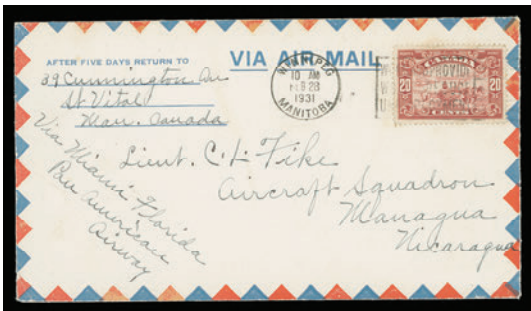 AFTER FIVE DAYS RETURN TO
VIA AIR MAIL
39 Cunnington Av
St Vital
Man. Canada
WINNIPEG
10 AM
FEB 28
1931
MANITOBA
PROVIDE
CANADA
20 20
CENTS
Via Miami Florida
Pan American
Airway
Lieut. C. L. Fike
Aircraft Squadron
Managua
Nicaragua